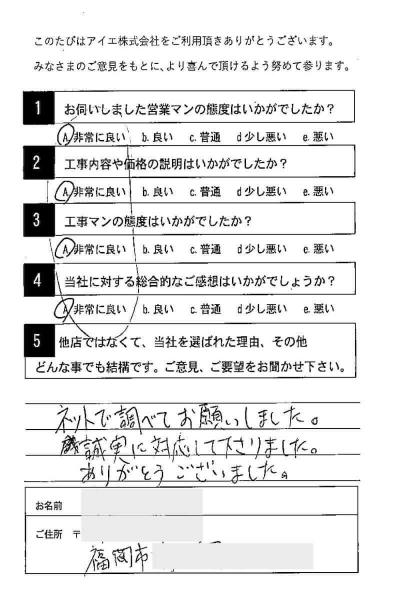 このたびはアイエ株式会社をご利用頂きありがとうございます。
みなさまのご意見をもとに、より喜んで頂けるよう努めて参ります。
1 お伺いしました営業マンの態度はいかがでしたか？
A.非常に良い b.良い c.普通 d少し悪い e.悪い
2 工事内容や価格の説明はいかがでしたか？
A.非常に良い b.良い c.普通 d少し悪い e.悪い
3 工事マンの態度はいかがでしたか？
A.非常に良い b.良い c.普通 d少し悪い e.悪い
4 当社に対する総合的なご感想はいかがでしょうか？
A.非常に良い b.良い c.普通 d少し悪い e.悪い
5 他店ではなくて、当社を選ばれた理由、その他
どんな事でも結構です。ご意見、ご要望をお聞かせ下さい。
ネットで調べてお願いしました。
誠実に対応して下さりました。
ありがとうございました。
お名前
ご住所 〒
福岡市